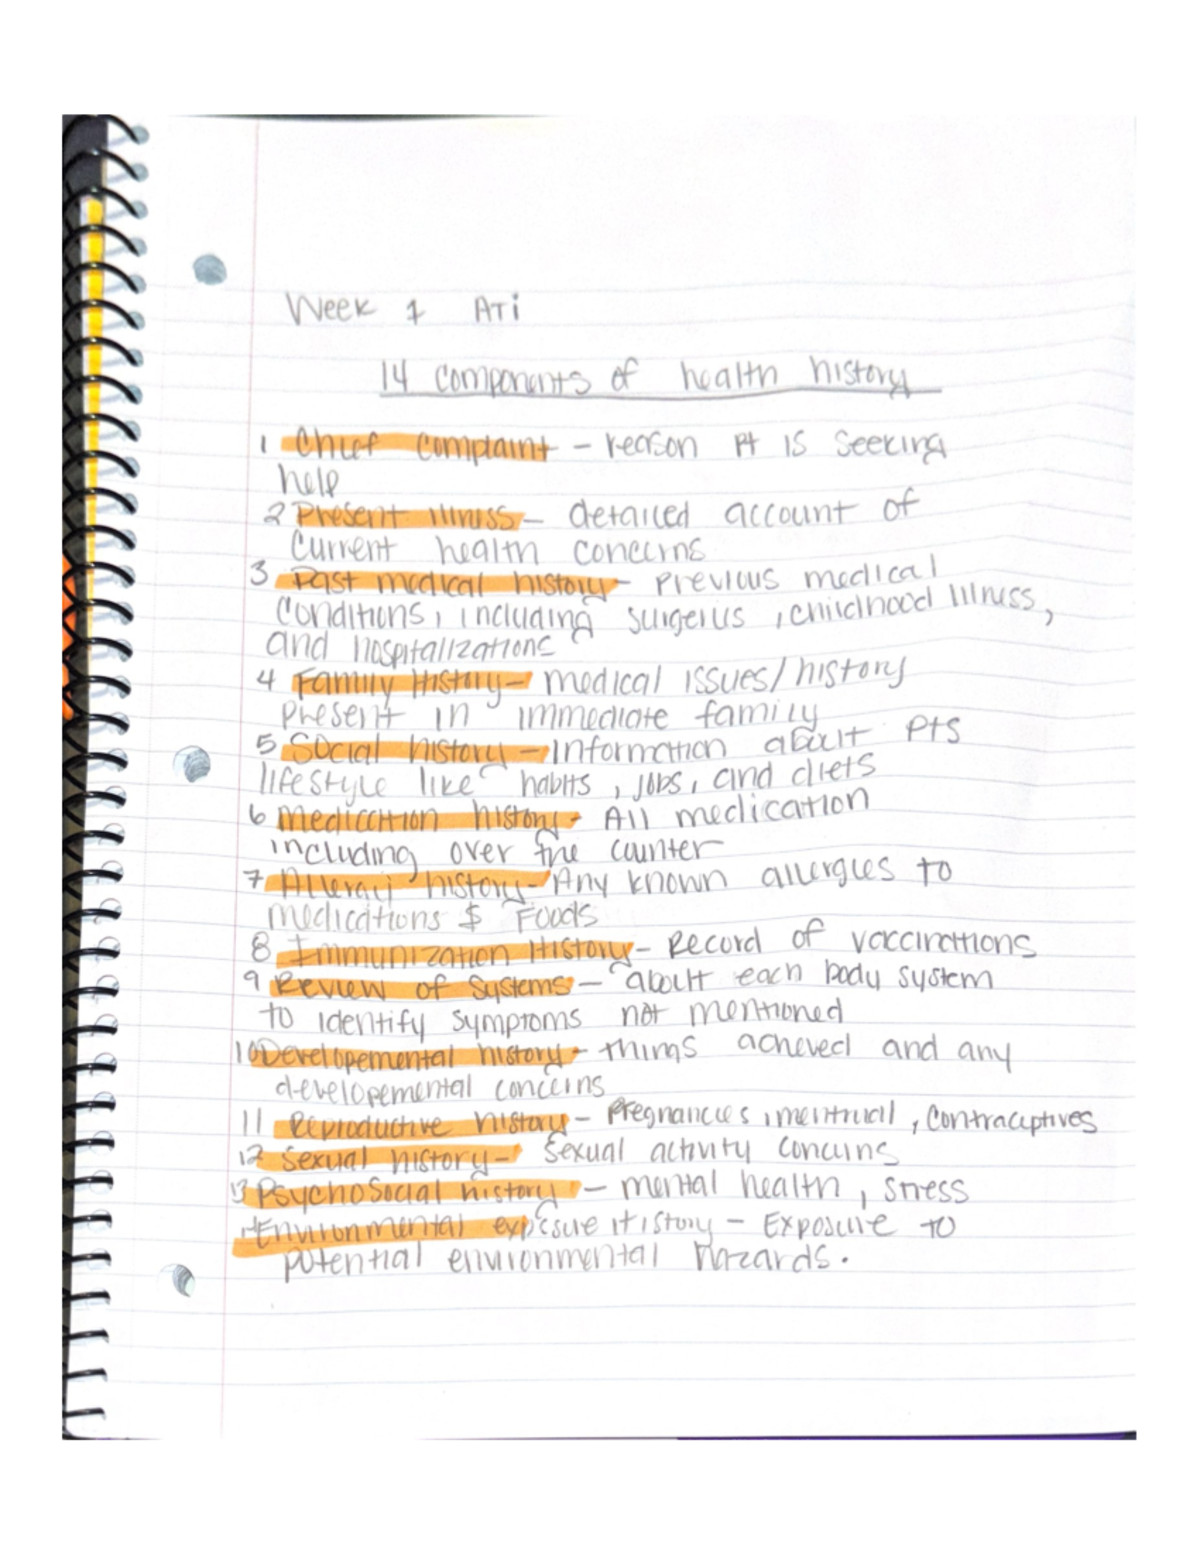 Week 1 ATi
14 Components of health history
1 Chief Complaint - reason Pt is seeking
help
2 Present Illness - detailed account of
current health concerns
3 Past medical history - previous medical
conditions, including surgeries, childhood illness,
and hospitalizations
4 Family History - medical issues/history
present in immediate family
5 Social history - Information about Pts
lifestyle like habits, jobs, and diets
6 medication history - All medication
including over the counter
7 Allergy history - Any known allergies to
medications $ Foods
8 Immunization History - Record of vaccinations
9 Review of Systems - about each body system
to identify symptoms not mentioned
10 Developemental history - things acheved and any
developemental concerns
11 Reproductive history - Pregnancies, mentrual, contraceptives
12 Sexual history - Sexual activity concerns
13 PsychoSocial history - mental health, stress
14 Environmental exposure History - Exposure to
potential environmental hazards.